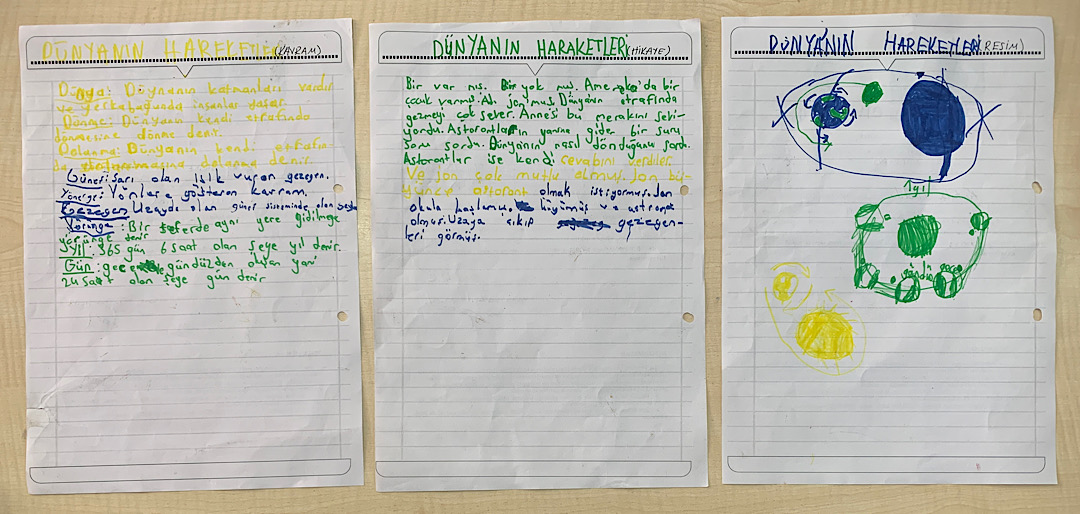 DÜNYANIN HAREKETLERİ (KAVRAM)
Dünya: Dünyanın katmanları vardır
ve yerkabuğunda insanlar yaşar.
Dönme: Dünyanın kendi etrafında
dönmesine dönme denir.
Dolanma: Dünyanın kendi etrafın-
da dolanmasına dolanma denir.
Güneş: Sarı olan ışık vuran gezegen.
Yönerge: Yönlere gösteren kavram.
Gezegen: Uzayda olan güneş sisteminde olan şeyle
Yörünge: Bir seferde aynı yere gidilmeye
yörünge denir
Yıl: 365 gün 6 saat olan şeye yıl denir.
Gün: gece gündüzden oluşan yani
24 saat olan şeye gün denir
DÜNYANIN HARAKETLERİ (HİKAYE)
Bir var mış. Bir yok muş. Amerika'da bir
çocuk varmış. Adı Jon'muş. Dünyanın etrafında
gezmeyi çok sever. Annesi bu merakını sevi-
yordu. Astorontların yanına gider bir sürü
soru sordu. Dünyanın nasıl döndüğünü sordu.
Astorontlar ise kendi cevabını verdiler.
Ve Jon çok mutlu olmuş. Jon bü-
yünce astoront olmak istiyormuş. Jon
okula başlamış, büyümüş ve astronot
olmuş. Uzaya çıkıp gezegen-
leri görmüş.
DÜNYANIN HAREKETLERİ (RESİM)
1 yıl
gündüz gece